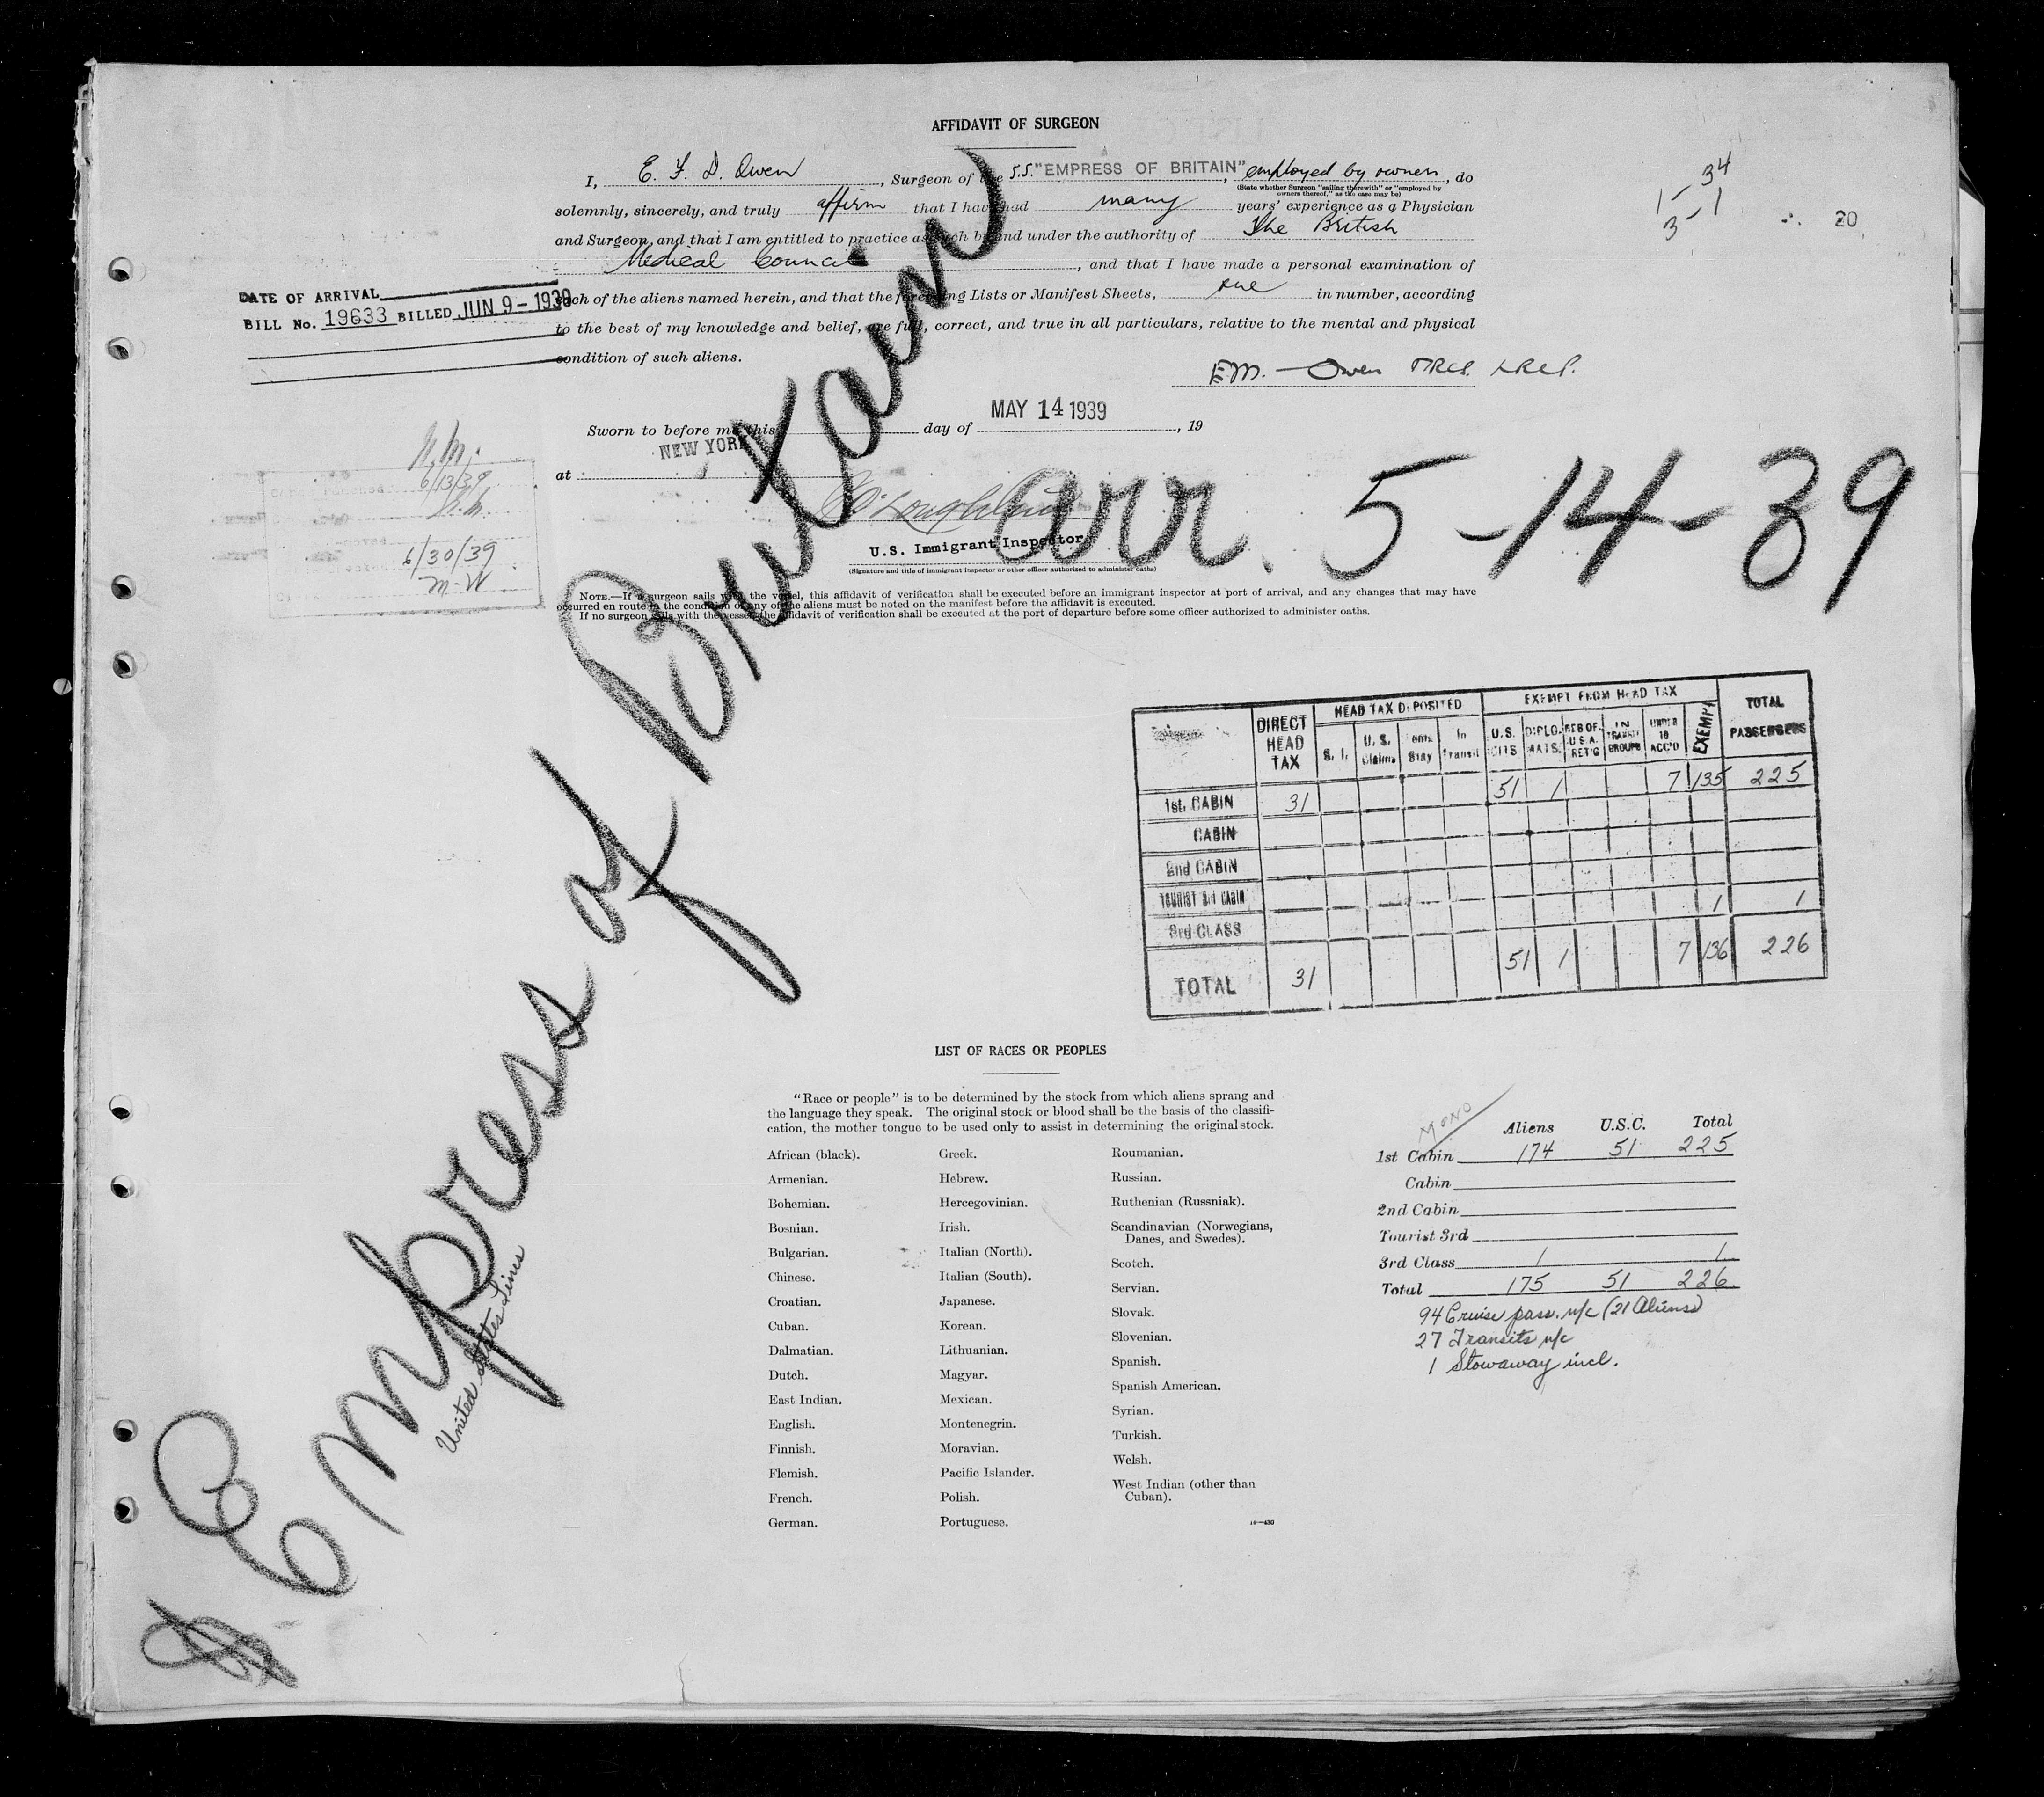 AFFIDAVIT OF SURGEON
I, E. F. D. Owen, Surgeon of the S.S. "EMPRESS OF BRITAIN", employed by owners, do
(State whether Surgeon "sailing therewith" or "employed by
owners thereof," as the case may be)
solemnly, sincerely, and truly affirm that I have had many years' experience as a Physician
and Surgeon, and that I am entitled to practice as such by and under the authority of The British
Medical Council, and that I have made a personal examination of
each of the aliens named herein, and that the foregoing Lists or Manifest Sheets, in number, according
to the best of my knowledge and belief, are full, correct, and true in all particulars, relative to the mental and physical
condition of such aliens.
Owen MRCS LRCP.
34
1-
3-1
20
DATE OF ARRIVAL
BILL No. 19633 BILLED JUN 9 - 1939
Sworn to before me this day of MAY 14 1939, 19
at NEW YORK
U.S. Immigrant Inspector
(Signature and title of immigrant inspector or other officer authorized to administer oaths)
arr. 5-14-39
6/13/39
6/30/39
M-W
NOTE.—If a surgeon sails with the vessel, this affidavit of verification shall be executed before an immigrant inspector at port of arrival, and any changes that may have
occurred en route in the condition of any of the aliens must be noted on the manifest before the affidavit is executed.
If no surgeon sails with the vessel the affidavit of verification shall be executed at the port of departure before some officer authorized to administer oaths.
Empress of Britain
United States Lines
DIRECT HEAD TAX HEAD TAX DEPOSITED EXEMPT FROM HEAD TAX TOTAL PASSENGERS
S. I. U. S. Claims Temp. Stay In Transit U.S. CITS DIPLO. MATS. RES OF U.S.A. RET'G IN TRANSIT GROUPS UNDER 16 ACC'D EXEMPT
1st. CABIN 31 51 1 7 135 225
CABIN
2nd CABIN
TOURIST 3rd CABIN
3rd CLASS 1 1
TOTAL 31 51 1 7 136 226
LIST OF RACES OR PEOPLES
"Race or people" is to be determined by the stock from which aliens sprang and
the language they speak. The original stock or blood shall be the basis of the classifi-
cation, the mother tongue to be used only to assist in determining the original stock.
African (black).
Armenian.
Bohemian.
Bosnian.
Bulgarian.
Chinese.
Croatian.
Cuban.
Dalmatian.
Dutch.
East Indian.
English.
Finnish.
Flemish.
French.
German.
Greek.
Hebrew.
Hercegovinian.
Irish.
Italian (North).
Italian (South).
Japanese.
Korean.
Lithuanian.
Magyar.
Mexican.
Montenegrin.
Moravian.
Pacific Islander.
Polish.
Portuguese.
Roumanian.
Russian.
Ruthenian (Russniak).
Scandinavian (Norwegians,
Danes, and Swedes).
Scotch.
Servian.
Slovak.
Slovenian.
Spanish.
Spanish American.
Syrian.
Turkish.
Welsh.
West Indian (other than
Cuban).
14—430
MONO
Aliens U.S.C. Total
1st Cabin 174 51 225
Cabin
2nd Cabin
Tourist 3rd
3rd Class 1 1
Total 175 51 226
94 Cruise pass. n/c (21 Aliens)
27 Transits n/c
1 Stowaway incl.